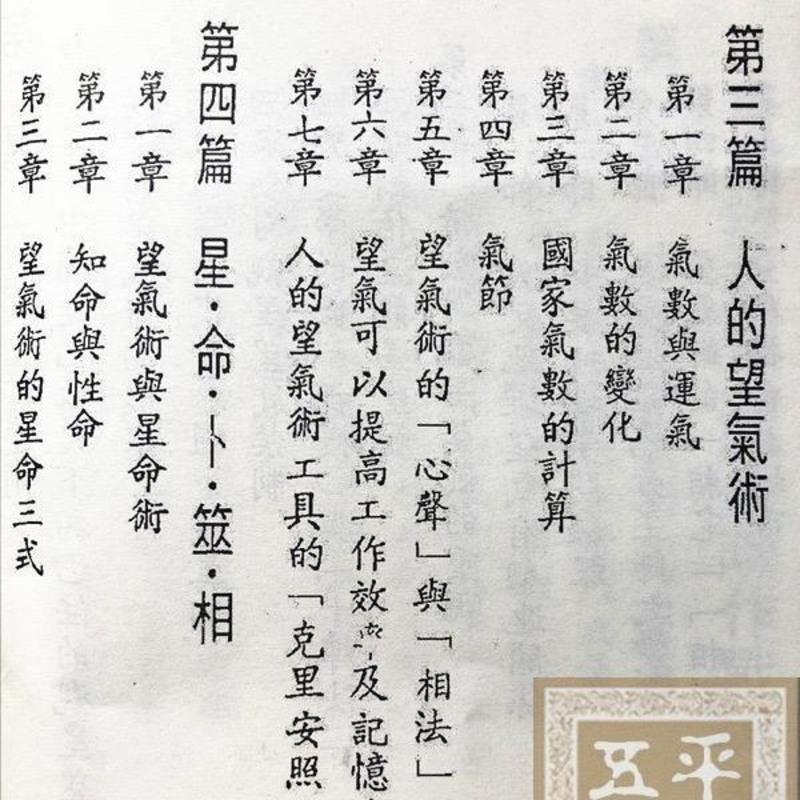 第三篇 人的望氣術
第一章 氣數與運氣
第二章 氣數的變化
第三章 國家氣數的計算
第四章 氣節
第五章 望氣術的「心聲」與「相法」
第六章 望氣可以提高工作效 及記憶
第七章 人的望氣術工具的「克里安照
第四篇 星·命·卜·筮·相
第一章 望氣術與星命術
第二章 知命與性命
第三章 望氣術的星命三式
五平